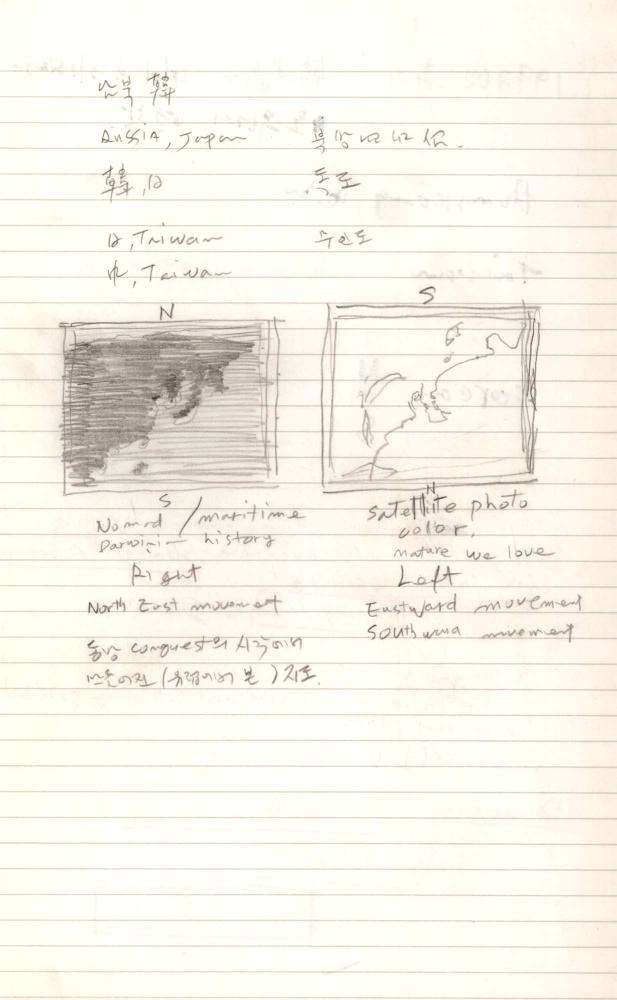 남북 韓
Russia, Japan 북방 4개 섬.
韓, 日 독도
日, Taiwan 무인도
中, Taiwan
N S
S N
Nomad / maritime
history
Satellite photo
color,
nature we love
Right Left
North East movement
Eastward movement
southward movement
동방 conquest의 시각에서
만들어진 (유럽에서 본) 지도.